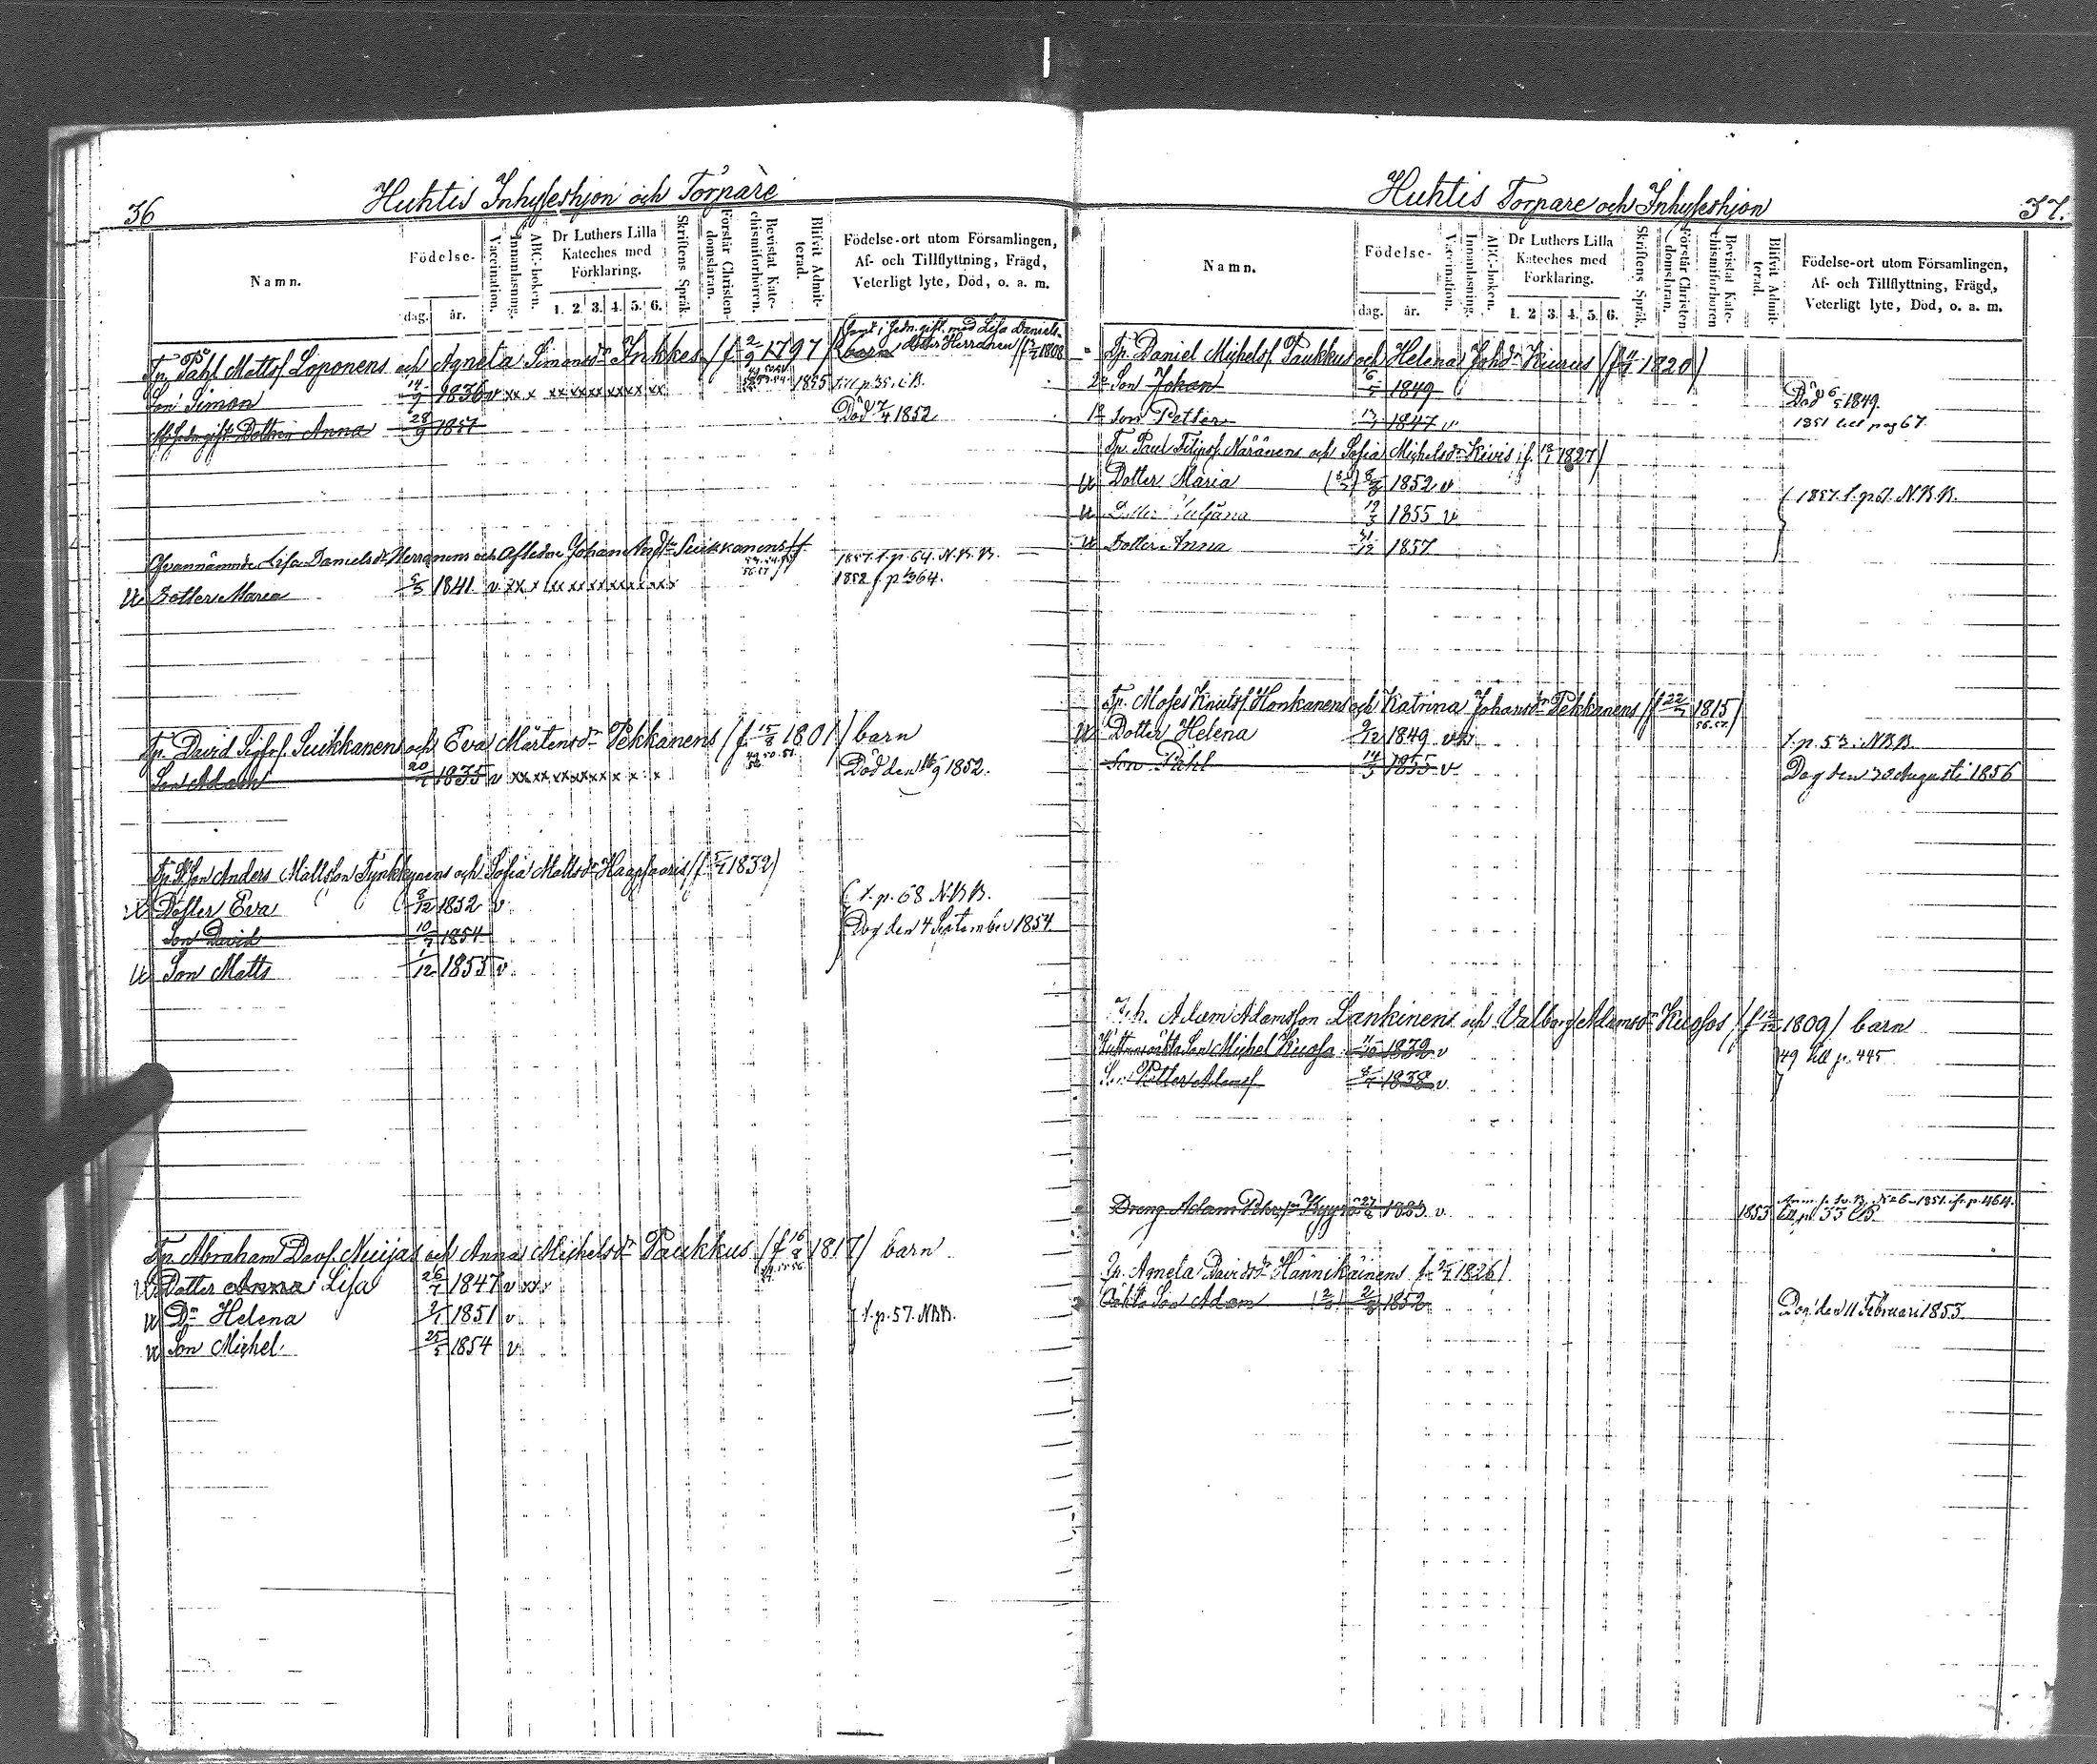 36
Huhtis Inhysehjon och Torpare
Namn.
Födelse-
dag.
år.
Vaccination.
Innanläsning.
ABC-boken.
Dr Luthers Lilla
Kateches med
Förklaring.
1. 2. 3. 4. 5. 6.
Skriftens Språk.
Förstår Christen-
domsläran.
Bevistat Kate-
chismiförhören.
Blifvit Admit-
terad.
Födelse-ort utom Församlingen,
Af- och Tillflyttning, Frägd,
Veterligt lyte, Död, o. a. m.
gift med Lisa Daniels
dotter Herranen 1808
Tp. Påhl Mattss. Loponens och Agneta Simonsdr Inkkes (f. 2/9 1797) barn
Son Simon 14/9 1836 v xx x xxxxxxxxx xx 1855 till p. 35. i B.
Dottren Anna 28/9 1851 Död 7/4 1852
Ofvannämnde Lisa Danielsdr Herranens och Aflidne Johan Suikkanens
1857 f. p. 64. N.B.B.
u Dotter Maria 5/3 1841 v xx x 1852 f. p. 364.
Tp. David Sigfrs. Suikkanens och Eva Mårtensdr Pekkanens (f. 15/8 1801) barn
49. 50. 51.
Son Adam 20/4 1835 v xx xx xxxxxxx x x Död den 16/9 1852.
Tp. Son Anders Mattsson Tynkkynens och Sofia Mattsdr Haapsaaris (f. 5/4 1832)
u Dotter Eva 8/12 1852 v f. p. 68 N.B.B.
Son David 10/7 1854 Dog den 4 September 1854
u Son Matts 1/12 1855 v
Tp. Abraham Davs. Nuijas och Anna Michelsdr Paukkus (f. 16/2 1817) barn
u Dotter Anna Lisa 26/7 1847 v xx
u Dr Helena 2/1 1851 v f. p. 57. N.B.B.
u Son Michel. 25/5 1854 v
Huhtis Torpare och Inhysehjon
37.
Namn.
Födelse-
dag.
år.
Vaccination.
Innanläsning.
ABC-boken.
Dr Luthers Lilla
Kateches med
Förklaring.
1. 2. 3. 4. 5. 6.
Skriftens Språk.
Förstår Christen-
domsläran.
Bevistat Kate-
chismiförhören
Blifvit Admit-
terad.
Födelse-ort utom Församlingen,
Af- och Tillflyttning, Frägd,
Veterligt lyte, Död, o. a. m.
Tp. Daniel Michelss. Paukkus och Helena Johdr Kiurus (f. 1820)
2e Son Johan 6/5 1849 Död 6/5 1849.
1e Son Petter 1847 v 1851 till pag 67.
Tp. Paul Filips. Näränens och Sofia Michelsdr Kivis (f. 18/1 1827)
u Dotter Maria 1852 v
1857. f. p. 61. N.B.B.
u Dotter Juljana 19/3 1855 v
u Dotter Anna 31/12 1857
Tp. Moses Knutss. Honkanens och Katrina Johansdr Pekkanens (f. 22/7 1815)
56. 57.
u Dotter Helena 9/12 1849 v f. p. 53. N.B.B.
Son Påhl 14/3 1855 v Dog den 30 Augusti 1856
Inh. Adam Adamsson Lankinens och Valborg Adamsdr Kuosos (f. 1809) barn
Son Michel Kuosa 1832 v 49 till p. 445
Son Petter Adamss. 8/7 1838 v
Dreng Adam Kyyrö 1833 v 1853
Ip. Agneta Davidsdr Hännikäinens f. 1826
Oäkta Son Adam 1852 Dog den 11 Februari 1853